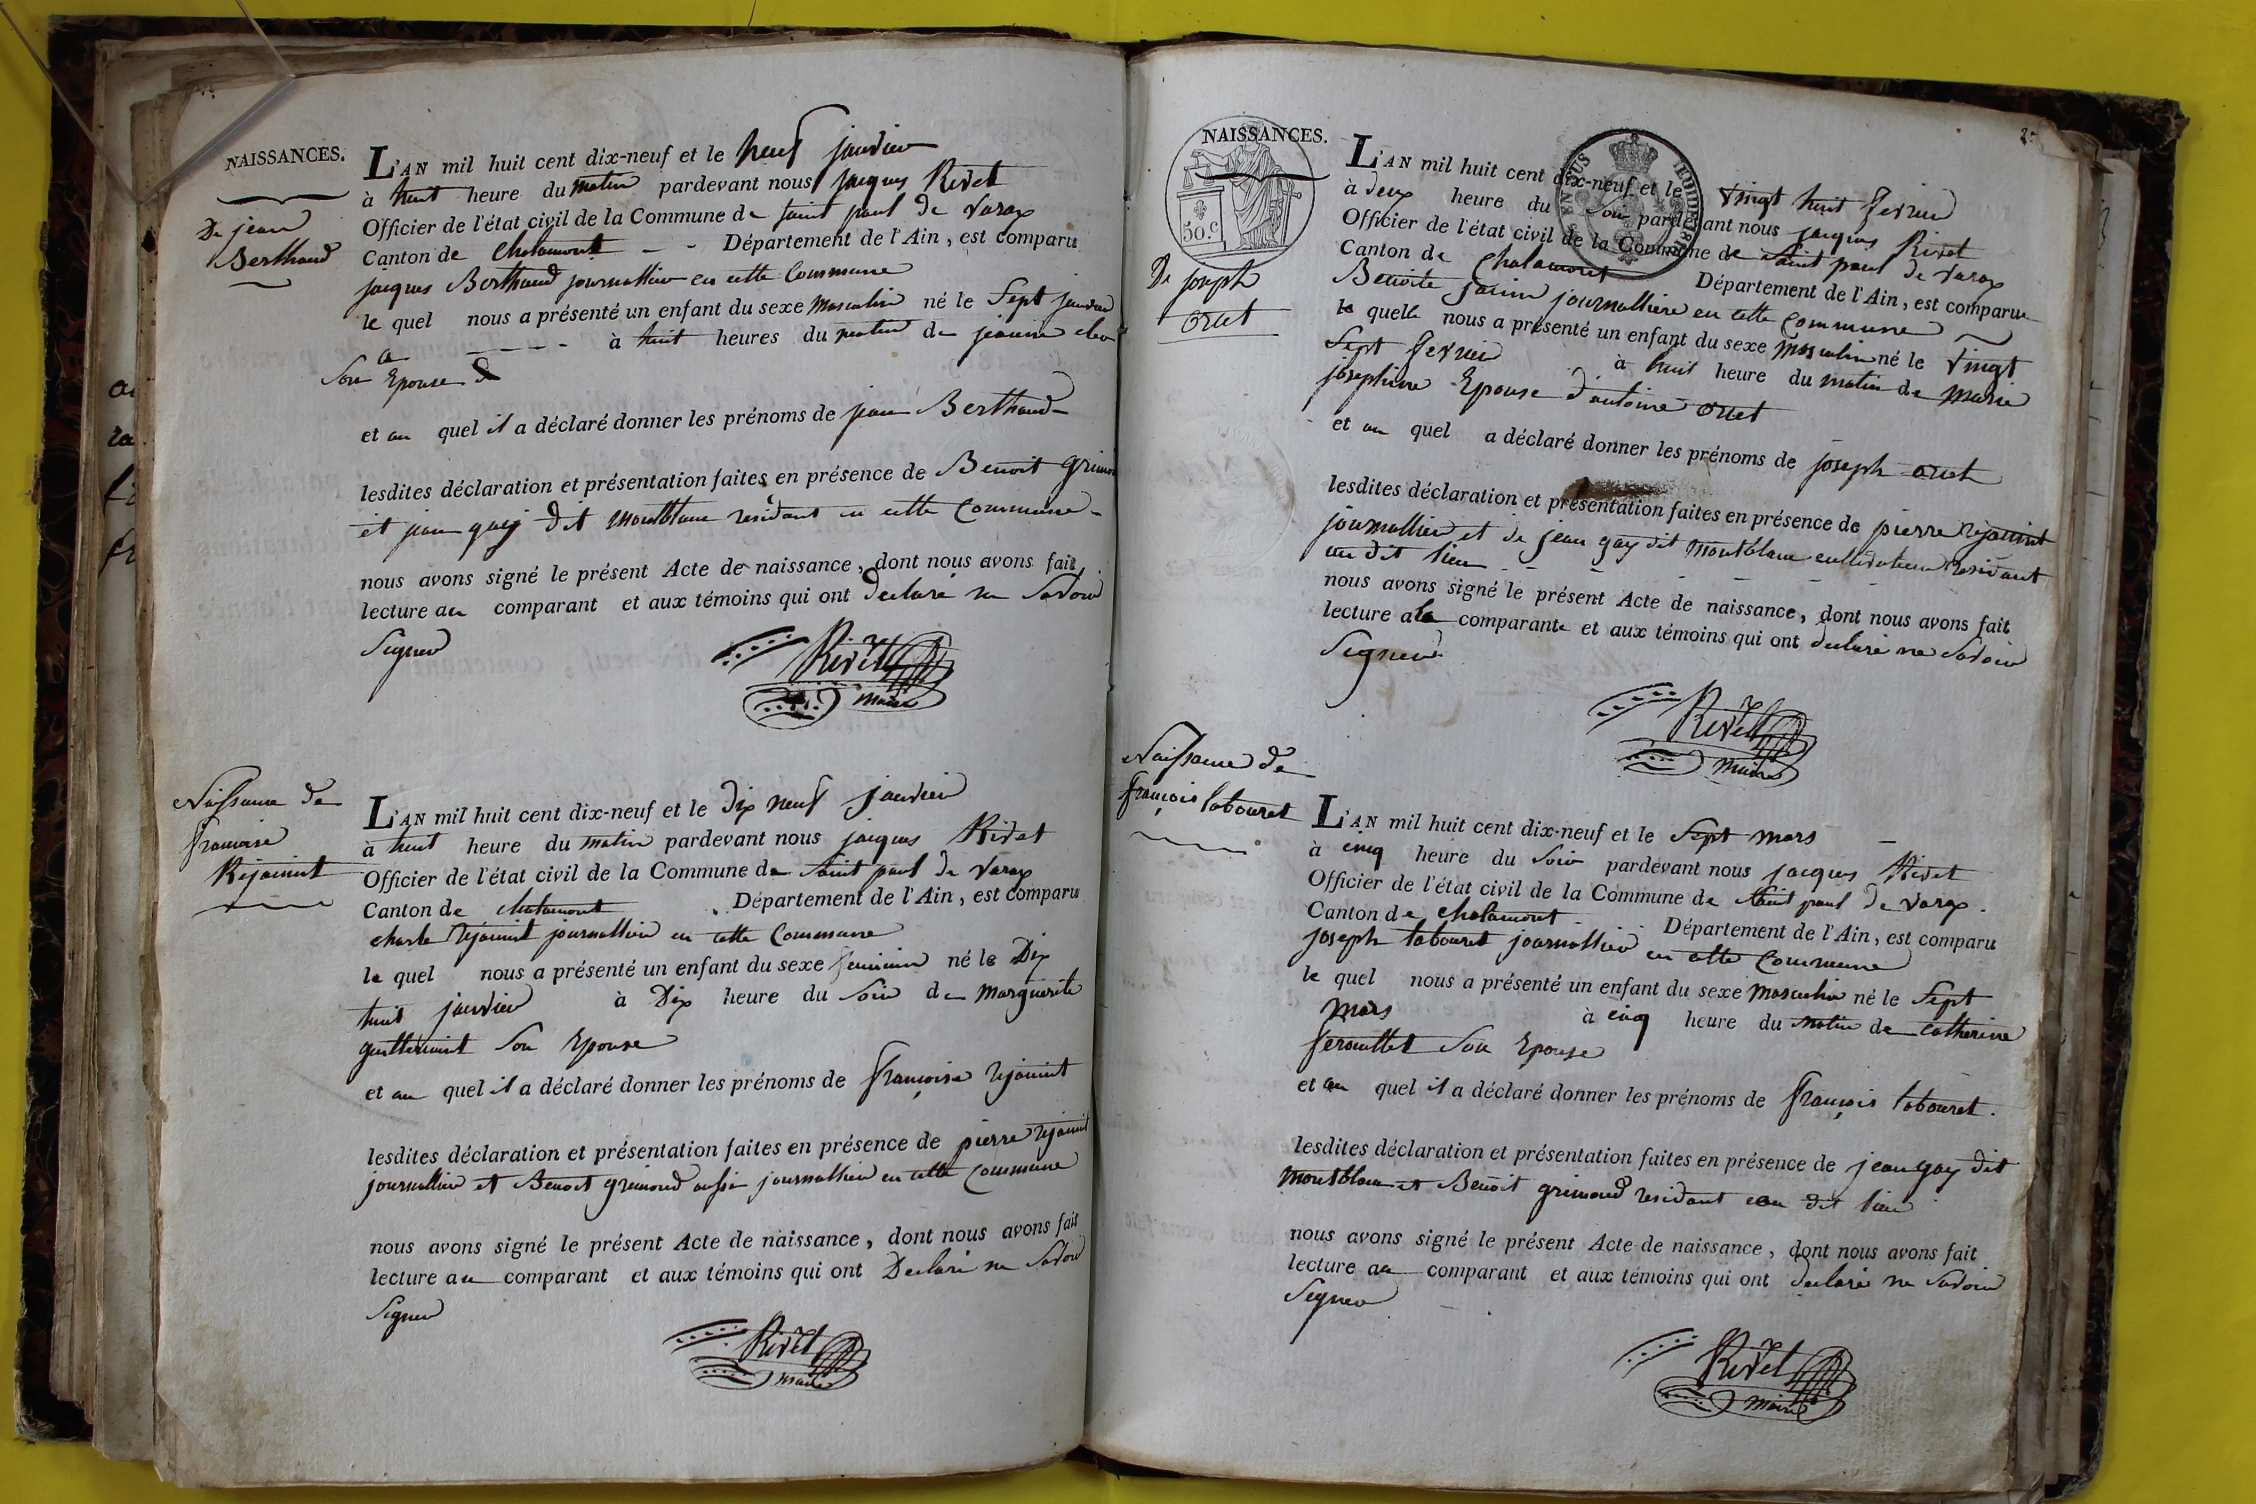 NAISSANCES.
De jean
Berthaud
L'AN mil huit cent dix-neuf et le neuf janvier
à huit heure du matin pardevant nous jacques Rivet
Officier de l'état civil de la Commune de saint paul de varax
Canton de chalamont - - Département de l'Ain, est comparu
jacques Berthaud journallier en cette Commune
le quel nous a présenté un enfant du sexe masculin né le Sept janvier
à huit heures du matin de jeanne
Son Epouse
et au quel il a déclaré donner les prénoms de jean Berthaud
lesdites déclaration et présentation faites en présence de Benoit
et jean gay dit montblanc residant en cette Commune
nous avons signé le présent Acte de naissance, dont nous avons fait
lecture au comparant et aux témoins qui ont declaré ne Savoir
Signer
Rivet
maire
Naissance de
francoise
Rejaunit
L'AN mil huit cent dix-neuf et le dix neuf janvier
à huit heure du matin pardevant nous jacques Rivet
Officier de l'état civil de la Commune de saint paul de varax
Canton de chalamont Département de l'Ain, est comparu
charle rejaunit journallier en cette Commune
le quel nous a présenté un enfant du sexe feminin né le Dix
huit janvier à Dix heure du Soir de marguerite
Son Epouse
et au quel il a déclaré donner les prénoms de françoise rejaunit
lesdites déclaration et présentation faites en présence de pierre rejaunit
journallier et Benoit grimoud aussi journallier en cette Commune
nous avons signé le présent Acte de naissance, dont nous avons fait
lecture au comparant et aux témoins qui ont Declaré ne Savoir
Signer
Rivet
maire
NAISSANCES.
50.c
De joseph
oruet
L'AN mil huit cent dix-neuf et le vingt huit fevrier
à deux heure du Soir pardevant nous jacques Rivet
Officier de l'état civil de la Commune de saint paul de varax
Canton de Chalamont Département de l'Ain, est comparue
Benoite journalliere en cette Commune
le quelle nous a présenté un enfant du sexe masculin né le vingt
Sept fevrier à huit heure du matin de marie
josephine Epouse d'antoine oruet
et au quel a déclaré donner les prénoms de joseph oruet
lesdites déclaration et présentation faites en présence de pierre rejaunit
journallier et de jean gay dit montblanc cultivateur residant
au dit lieu
nous avons signé le présent Acte de naissance, dont nous avons fait
lecture a la comparante et aux témoins qui ont declaré ne Savoir
Signer
Rivet
maire
Naissance de
françois labouret
L'AN mil huit cent dix-neuf et le Sept mars
à cinq heure du Soir pardevant nous jacques Rivet
Officier de l'état civil de la Commune de saint paul de varax.
Canton de chalamont Département de l'Ain, est comparu
joseph labouret journallier en cette Commune
le quel nous a présenté un enfant du sexe masculin né le Sept
mars à cinq heure du matin de catherine
ferouillet Son Epouse
et au quel il a déclaré donner les prénoms de françois labouret.
lesdites déclaration et présentation faites en présence de jean gay dit
montblanc et Benoit grimoud residant au dit lieu
nous avons signé le présent Acte de naissance, dont nous avons fait
lecture au comparant et aux témoins qui ont declaré ne Savoir
Signer
Rivet
maire